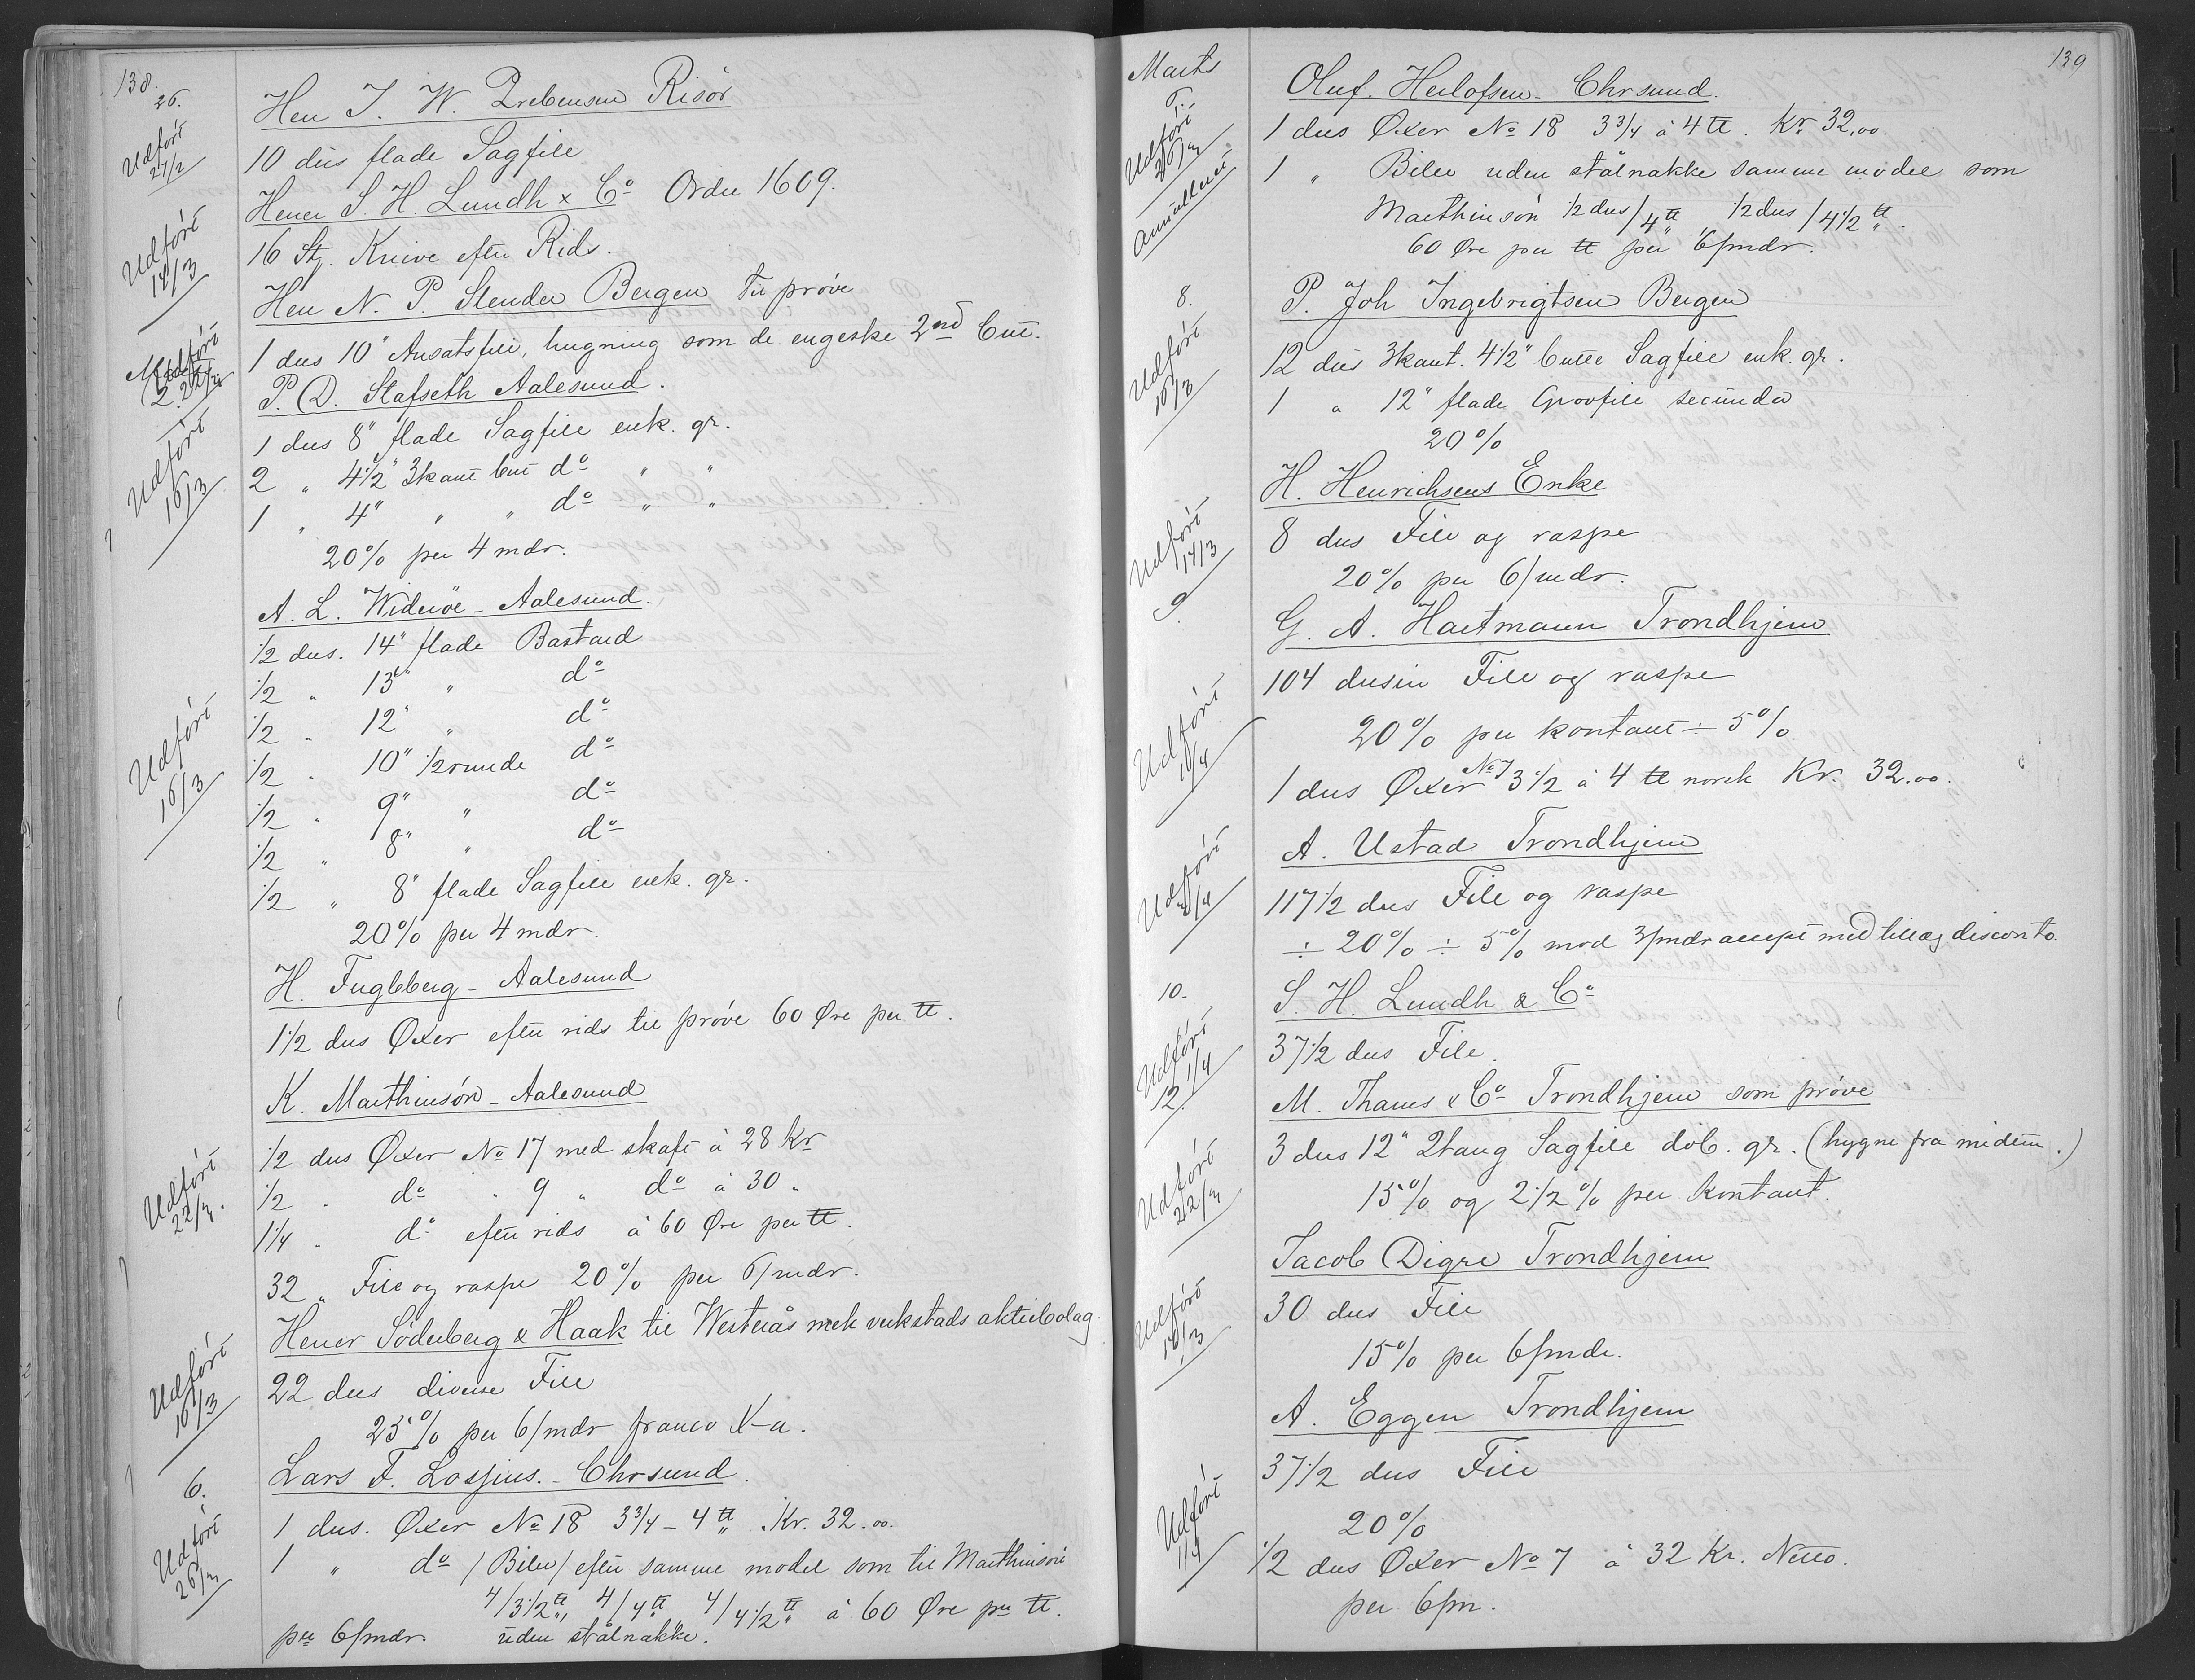 138.
26.
Herr J. W. Prebensen Risör
Udfört 27/2
10 dus flade Sagfile
Herrer S. H. Lundh & Co Ordre 1609.
Udfört 14/3
16 St. Knive efter Rids.
Herr N. P. Stender Bergen Til prøve
1 dus 10" Ansatsfile, hugning som de engelske 2nd Cut.
Udfört
P. D. Stafseth Aalesund.
Udfört 16/3
1 dus 8" flade Sagfile enk. gr.
2 " 4 1/2" 3kant Cut do " "
1 " 4" " " do " "
20% per 4 mdr.
A. L. Widerøe - Aalesund.
Udfört 16/3
1/2 dus. 14" flade Bastard
1/2 " 13" " do
1/2 " 12" " do
1/2 " 10" 1/2runde do
1/2 " 9" " do
1/2 " 8" " do
1/2 " 8" flade Sagfile enk. gr.
20% per 4 mdr.
H. Fugleberg - Aalesund
1 1/2 dus Øxer efter rids til prøve 60 Øre per ℔.
K. Marthinsön - Aalesund
Udfört 22/3.
1/2 dus Øxer No 17 med skaft à 28 Kr
1/2 " do " 9 " do à 30 "
1 1/4 " do efter rids à 60 Øre per ℔.
32 " File og raspe 20% per 6/mdr.
Herrer Söderberg & Haak til Westerås mek verkstads aktiebolag.
Udfört 16/3
22 dus diverse File
25% per 6/mdr franco X-a.
6.
Lars F. Lossius. - Chrsund.
Udfört 26/3
1 dus. Øxer No 18 3 3/4 - 4 ℔ " Kr. 32.00.
1 " do /Biler/ efter samme model som til Marthinsön
4/3 1/2 ℔, 4/4 ℔ 4/4 1/2 ℔ à 60 Øre pr ℔.
per 6/mdr. uden stålnakke.
Marts
139
6.
Oluf. Herlofsen - Chrsund.
Udfört 26/3
1 dus Øxer No 18 3 3/4 à 4 ℔. Kr 32.00.
Annulleret
1 " Biler uden stålnakke samme model som
Marthinsön 1/2 dus/4 ℔ 1/2 dus/4 1/2 ℔.
60 Øre per ℔ per 6/mdr.
8.
P. Joh Ingebrigtsen Bergen
Udfört 16/3
12 dus 3kant. 4 1/2" Cutte Sagfile enk. gr.
1 " 12" flade Grovfile secunda
20%
H. Henrichsens Enke
Udfört 14/3
8 dus File og raspe
20% per 6/mdr.
9.
G. A. Hartmann Trondhjem
Udfört
104 dusin File og raspe
20% per kontant ÷ 5%
1 dus Øxer No 7 3 1/2 à 4 ℔ norsk Kr. 32.00.
A. Ustad Trondhjem
Udfört
117 1/2 dus File og raspe
÷ 20% ÷ 5% mod 3/mdr accept med tillæg disconto.
10.
S. H. Lundh & Co
Udfört
37 1/2 dus File.
12.
M. Thams & Co Trondhjem som prøve
Udfört 22/3
3 dus 12" 2tang Sagfile dob. gr. (hygne fra midten.)
15% og 2 1/2% per Kontant.
Jacob Digre Trondhjem
Udfört
30 dus File
15% per 6/mdr.
A. Eggen Trondhjem
Udfört
37 1/2 dus File
20%
1/2 dus Øxer No 7 à 32 Kr. Netto.
per 6/m.